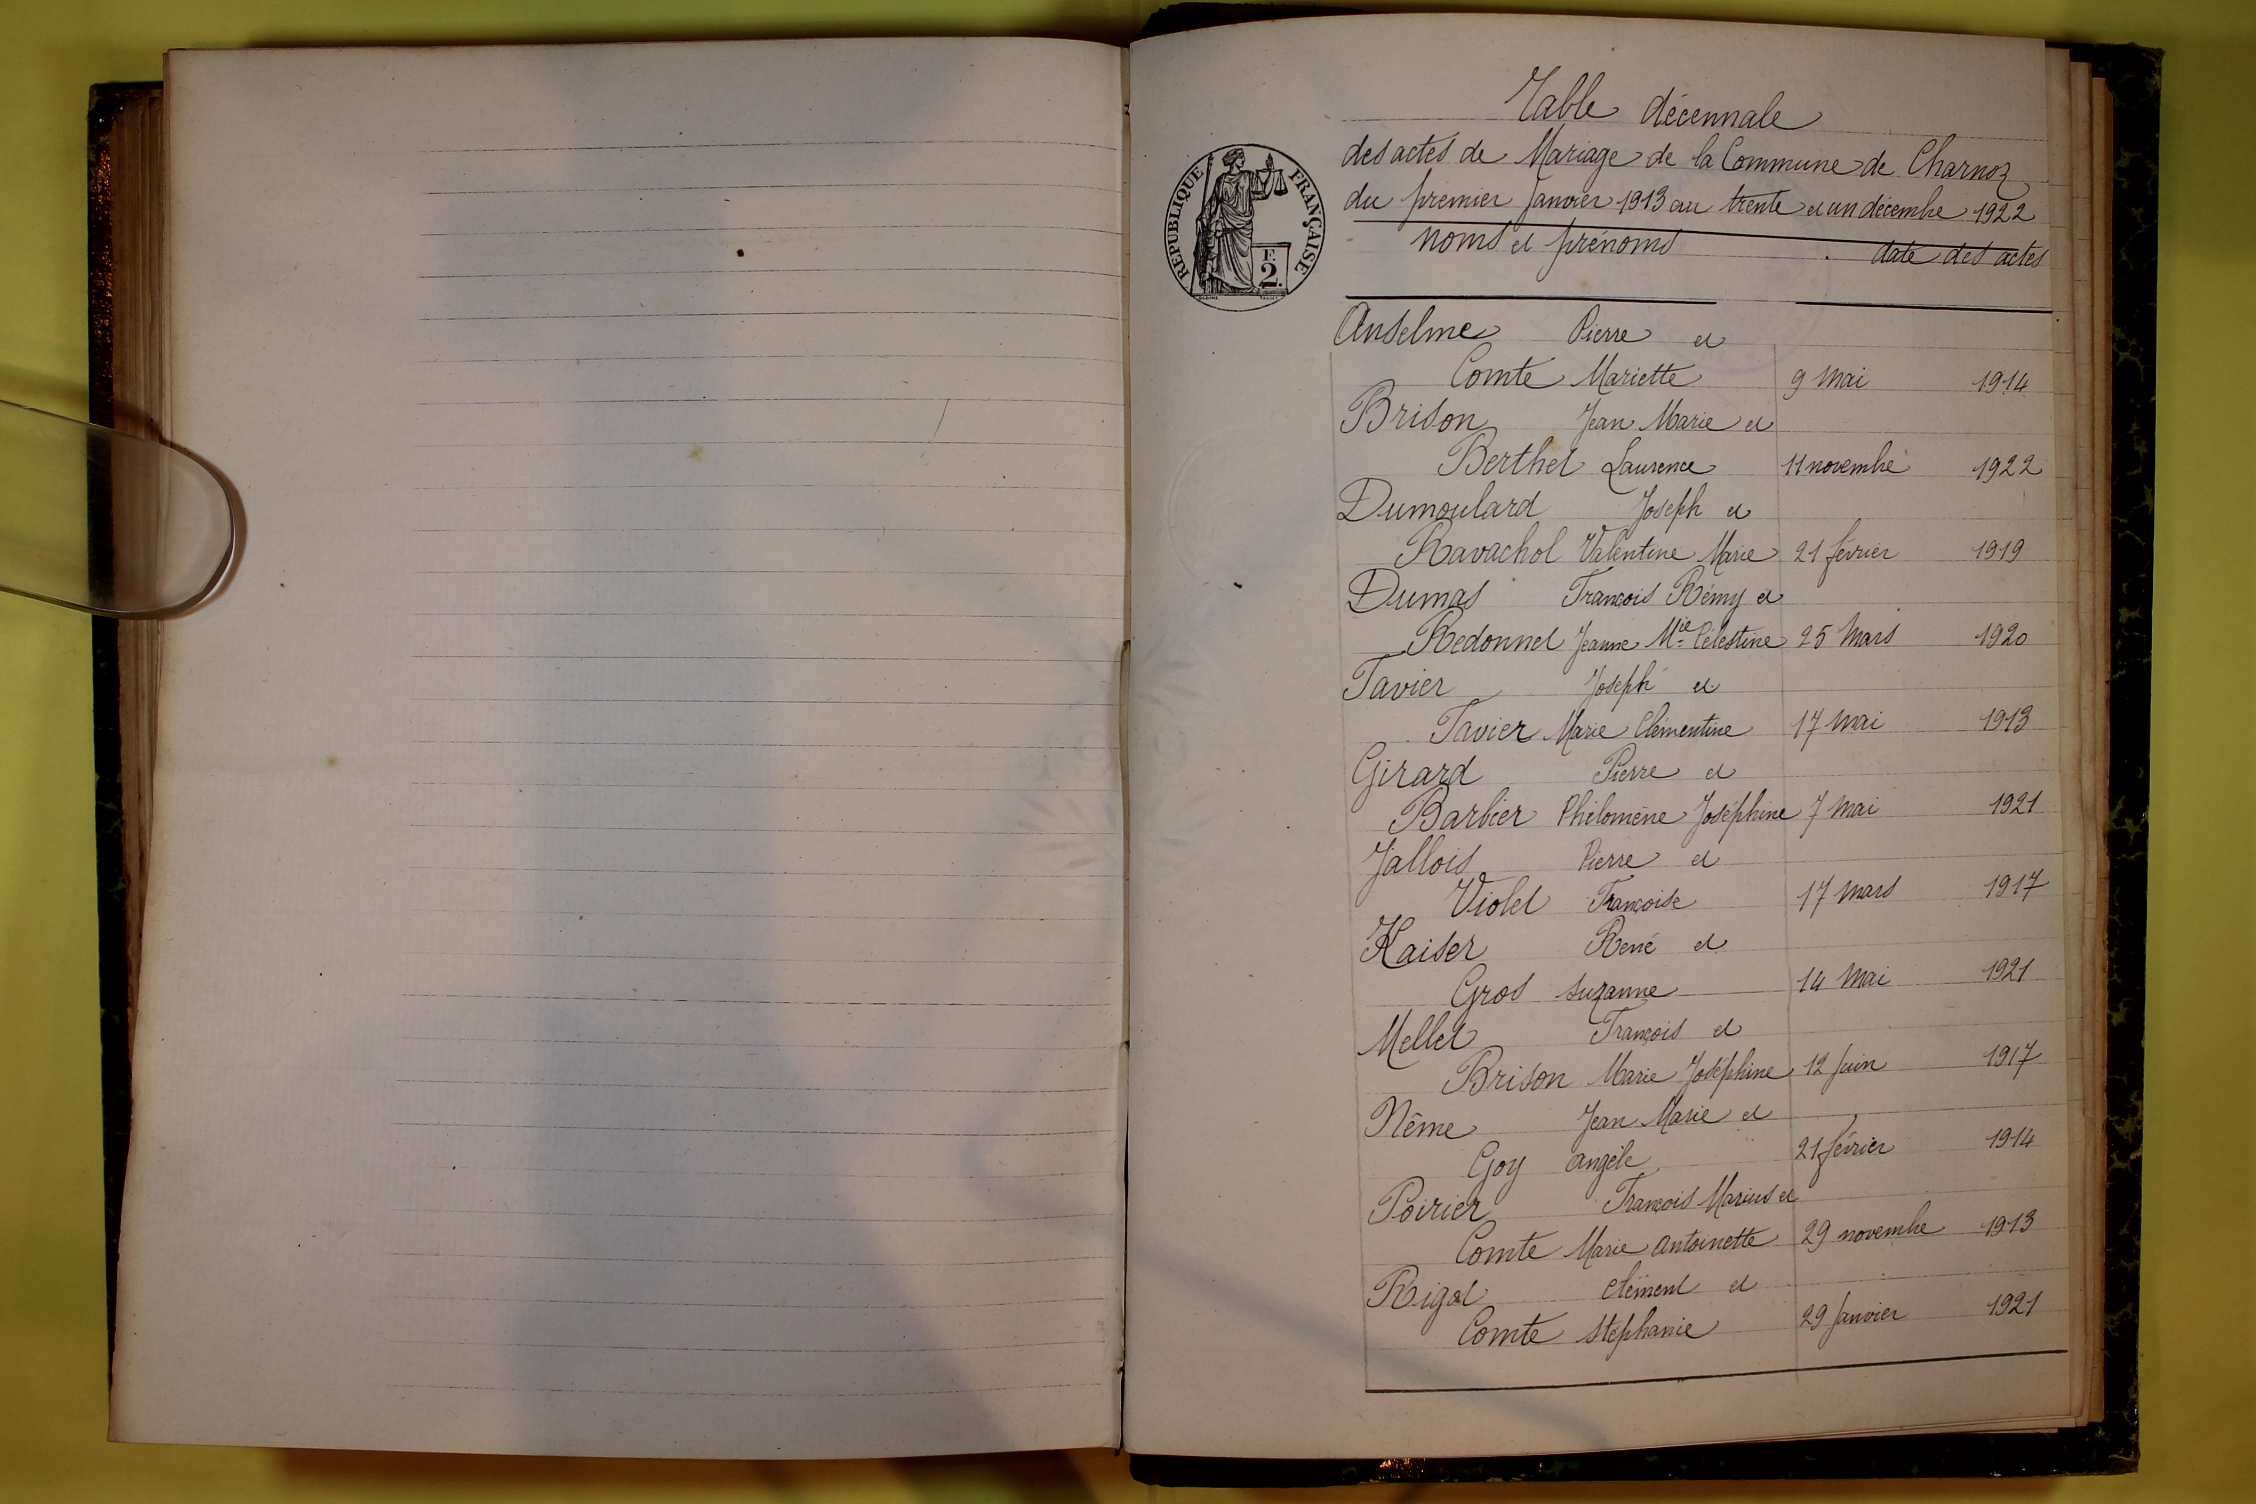 Table décennale
des actes de Mariage de la Commune de Charnoz
du premier Janvier 1913 au trente et un décembre 1922
RÉPUBLIQUE FRANÇAISE
F.
2.
noms et prénoms date des actes
Anselme Pierre et
Comte Mariette 9 Mai 1914
Brison Jean Marie et
Berthet Laurence 11 novembre 1922
Dumoulard Joseph et
Ravachol Valentine Marie 21 février 1919
Dumas François Rémy et
Redonnet Jeanne Mie Célestine 25 Mars 1920
Favier Joseph et
Favier Marie Clémentine 17 Mai 1913
Girard Pierre et
Barbier Philomène Joséphine 7 Mai 1921
Jallois Pierre et
Violet Françoise 17 Mars 1917
Kaiser René et
Gros Suzanne 14 Mai 1921
Mellet François et
Brison Marie Joséphine 12 Juin 1917
Nême Jean Marie et
Goy Angèle 21 février 1914
Poirier François Marius et
Comte Marie Antoinette 29 novembre 1913
Rigot Clément et
Comte Stéphanie 29 Janvier 1921